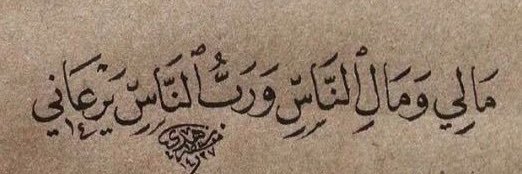 مَالِي وَمَالِ ٱلنَّاسِ وَرَبُّ ٱلنَّاسِ يَرْعَانِي